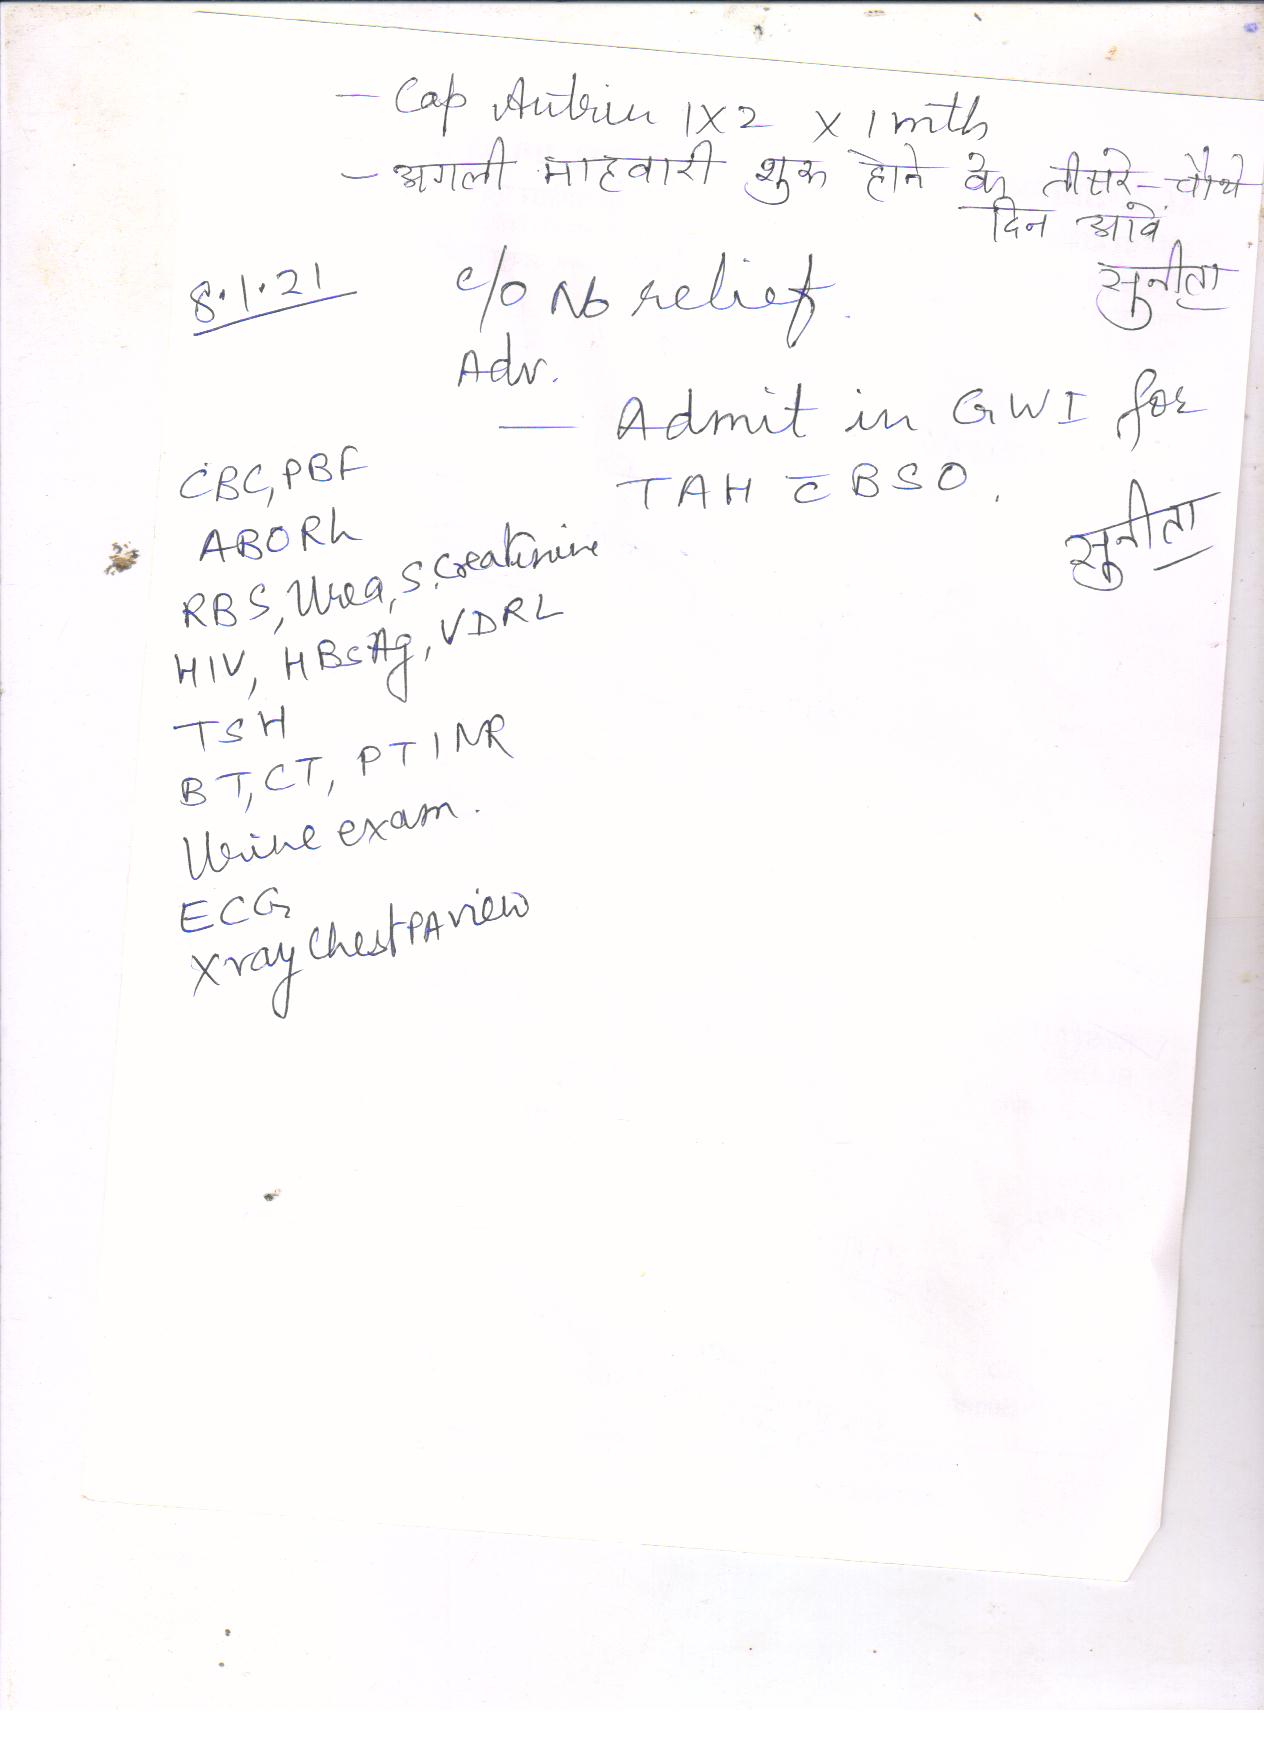 - Cap Autrin 1X2 X 1 mth
- अगली माहवारी शुरू होने के तीसरे-चौथे
दिन आवें
सुनीता
8.1.21 c/o No relief.
Adv.
- Admit in GWI for
TAH c̅ BSO.
सुनीता
CBC, PBF
ABORh
RBS, Urea, S. Creatinine
HIV, HBsAg, VDRL
TSH
BT, CT, PTINR
Urine exam.
ECG
Xray Chest PA view